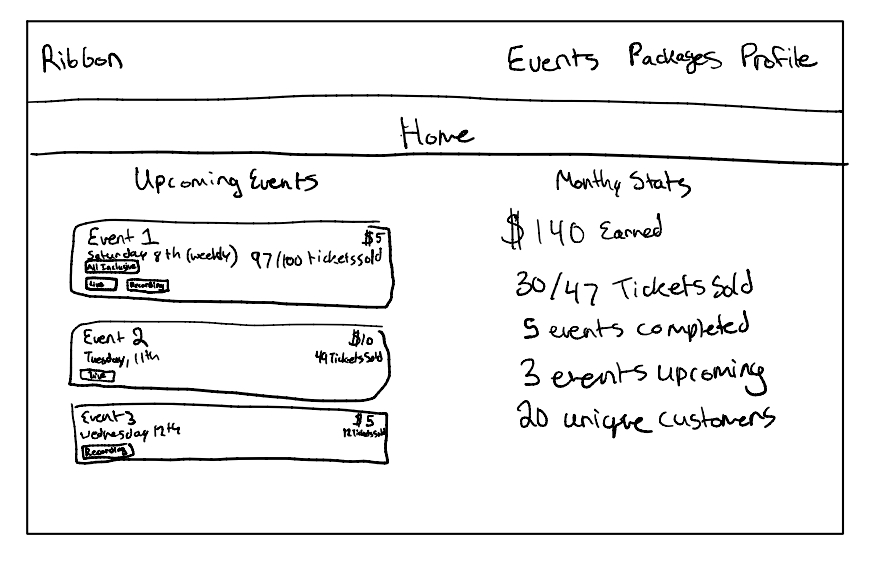 Ribbon
Events Packages Profile
Home
Upcoming Events
Event 1 $5
Saturday 8th (weekly) 97/100 tickets sold
All Inclusive
Live Recording
Event 2 $10
Tuesday, 11th 49 Tickets Sold
Live
Event 3 $5
Wednesday 12th 12 tickets sold
Recording
Monthy Stats
$140 Earned
30/47 Tickets Sold
5 events completed
3 events upcoming
20 unique customers